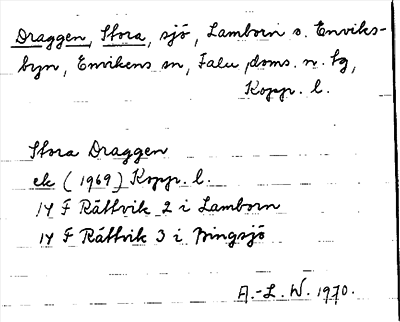 Draggen, Stora, sjö, Lamborn s. Enviks-
byn, Envikens sn, Falu doms. n. tg,
Kopp. l.
Stora Draggen
ek (1969) Kopp. l.
14 F Rättvik 2 i Lamborn
14 F Rättvik 3 i Bingsjö
A.-L. W. 1970.